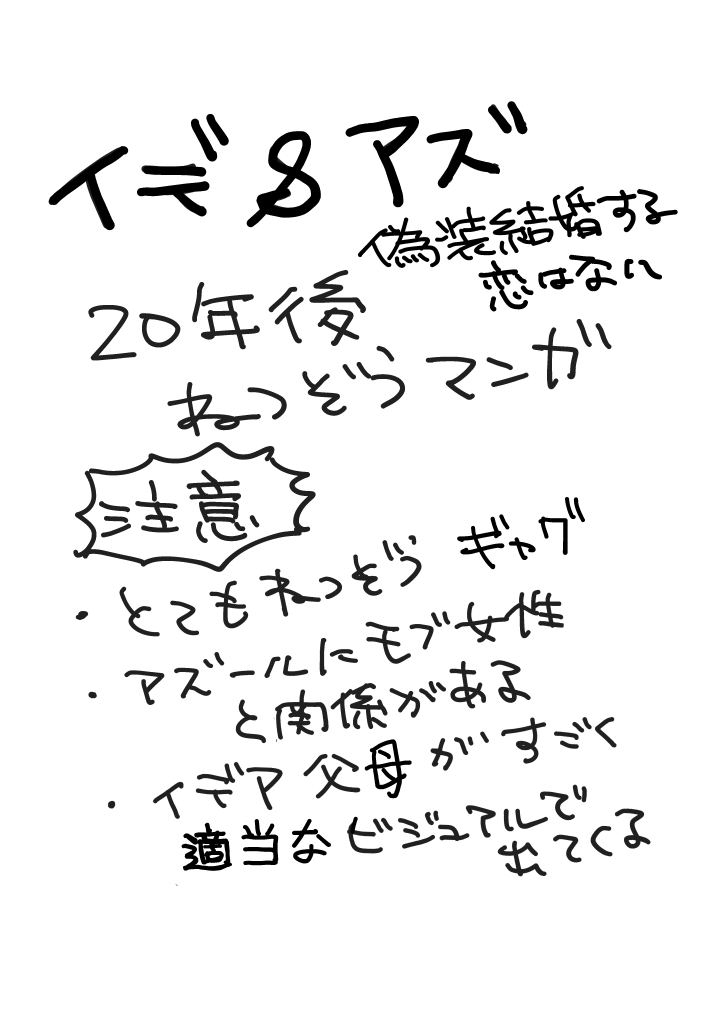 イデ&アズ
偽装結婚する
恋はない
20年後
ねつぞうマンガ
注意
・とてもねつぞう ギャグ
・アズールにモブ女性
と関係がある
・イデア父母がすごく
適当なビジュアルで
出てくる